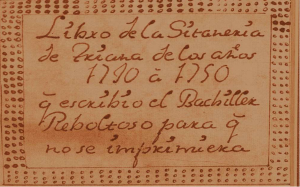 Libro de la Gitaneria
de Triana de los años
1740 à 1750
q̃ escribio el Bachiller
Reboltoso para q̃
no se imprimiera